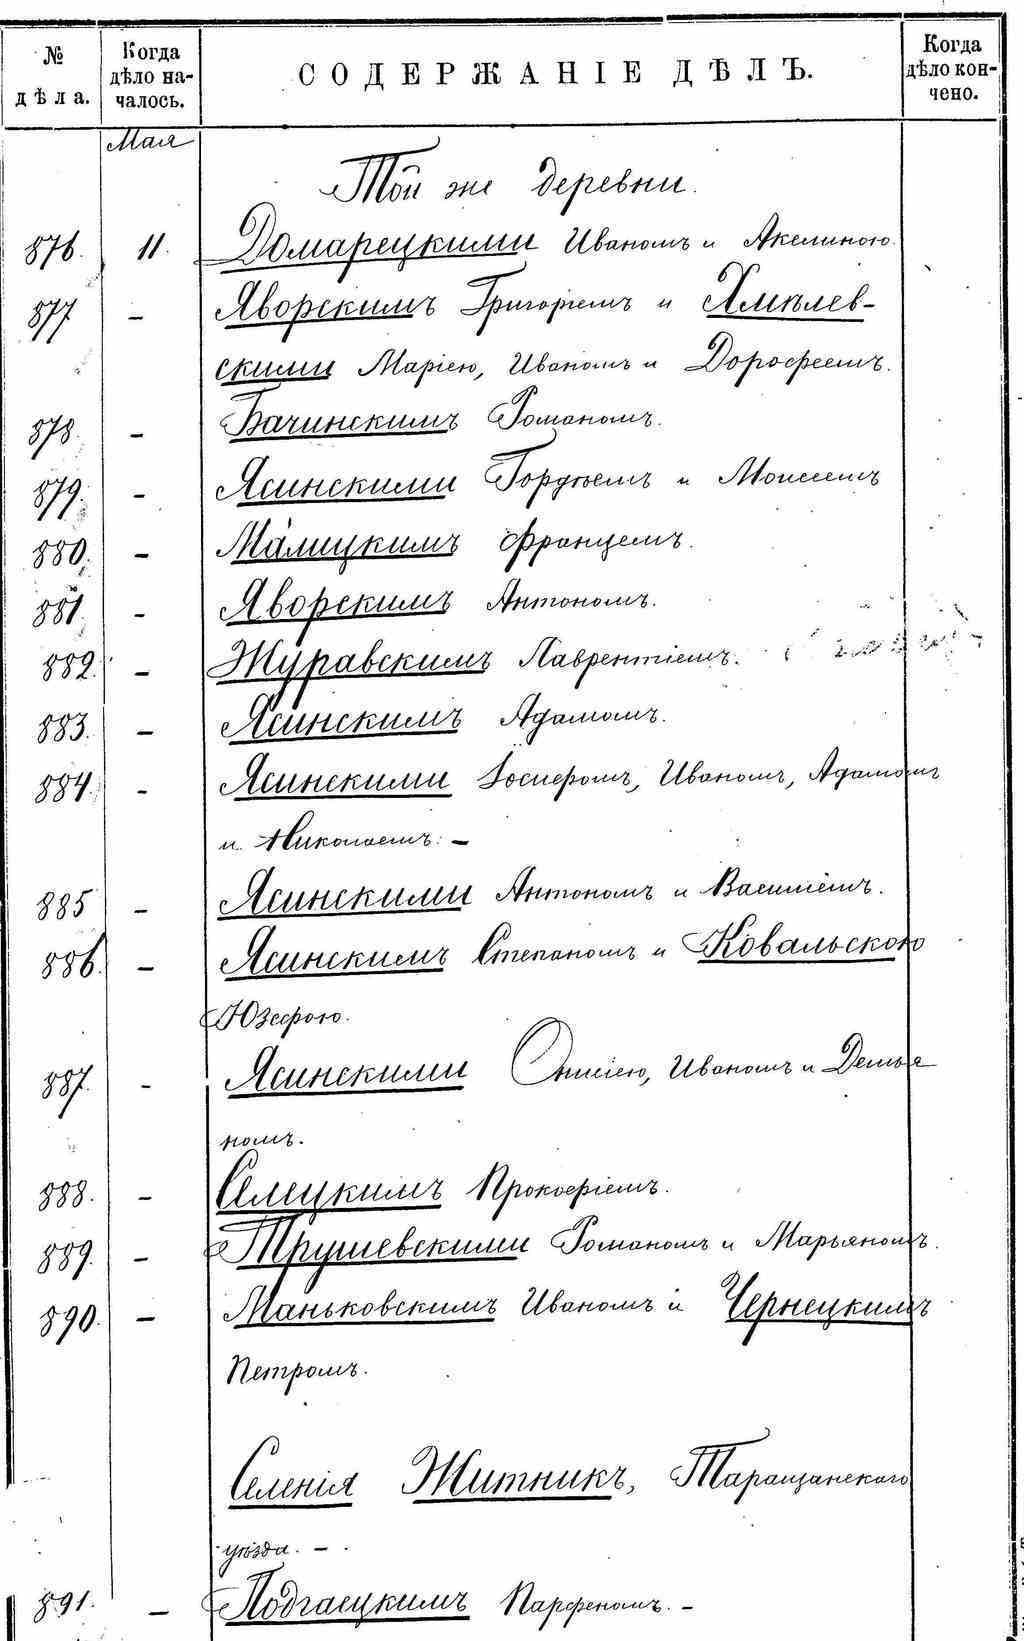 № дѣла. Когда дѣло началось. СОДЕРЖАНІЕ ДѢЛЪ. Когда дѣло кончено.
Мая
Той же деревни.
876. 11. Домарецкими Иваномъ и Акелиною.
877 – Яворскимъ Григоріемъ и Хмѣлев-
скими Маріею, Иваномъ и Дорофеемъ.
878. – Бачинскимъ Романомъ.
879. – Ясинскими Гордѣемъ и Моисеемъ
880. – Малицкимъ Францемъ.
881. – Яворскимъ Антономъ.
882. – Журавскимъ Лаврентіемъ.
883. – Ясинскимъ Адамомъ.
884. – Ясинскими Іосифомъ, Иваномъ, Адамомъ
и Николаемъ. –
885 – Ясинскими Антономъ и Василіемъ.
886. – Ясинскимъ Степаномъ и Ковальскою
Юзефою.
887. – Ясинскими Онисіею, Иваномъ и Демья
номъ.
888. – Селецкимъ Прокофіемъ.
889. – Трушевскими Романомъ и Марьяномъ.
890. – Маньковскимъ Иваномъ и Чернецкимъ
Петромъ.
Селенія Житникъ, Таращанскаго
уѣзда. –
891. – Подгаецкимъ Парфеномъ. –